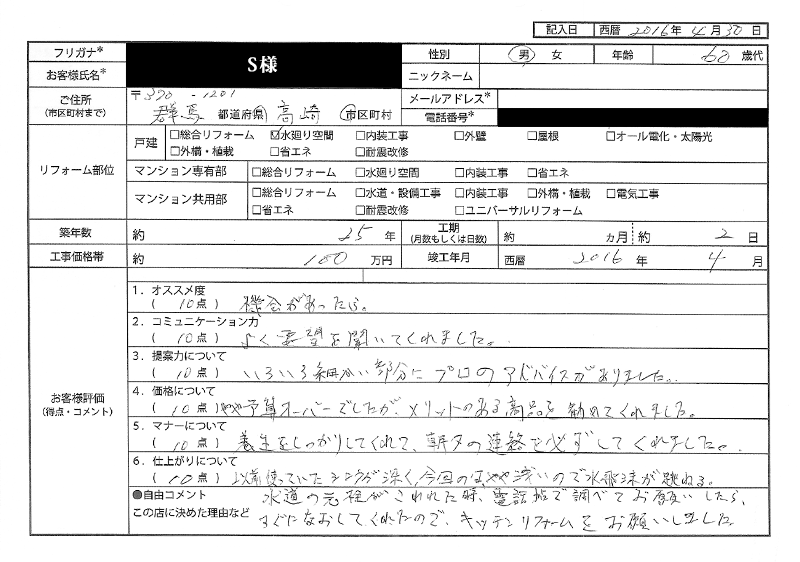 記入日 西暦 2016年 4月30日
フリガナ* 性別 男 女 年齢 60 歳代
お客様氏名* S様 ニックネーム
ご住所 (市区町村まで) 〒370-1201 群馬 都道府県 高崎 市区町村 メールアドレス*
電話番号*
リフォーム部位 戸建 □総合リフォーム ☑水廻り空間 □内装工事 □外壁 □屋根 □オール電化・太陽光
□外構・植栽 □省エネ □耐震改修
マンション専有部 □総合リフォーム □水廻り空間 □内装工事 □省エネ
マンション共用部 □総合リフォーム □水道・設備工事 □内装工事 □外構・植栽 □電気工事
□省エネ □耐震改修 □ユニバーサルリフォーム
築年数 約 25 年 工期 (月数もしくは日数) 約 ヵ月 約 2 日
工事価格帯 約 100 万円 竣工年月 西暦 2016 年 4 月
お客様評価 (得点・コメント)
1．オススメ度
( 10点 ) 機会があったら。
2．コミュニケーション力
( 10点 ) よく要望を聞いてくれました。
3．提案力について
( 10点 ) いろいろ細かい部分にプロのアドバイスがありました。
4．価格について
( 10点 ) やや予算オーバーでしたが、メリットのある商品を勧めてくれました。
5．マナーについて
( 10点 ) 養生をしっかりしてくれて、朝夕の連絡を必ずしてくれました。
6．仕上がりについて
( 10点 ) 以前使っていたシンクが深く、今回のはやや浅いので水飛沫が跳ねる。
●自由コメント 水道の元栓がこわれた時、電話帳で調べてお願いしたら、
この店に決めた理由など すぐになおしてくれたので、キッチンリフォームをお願いしました